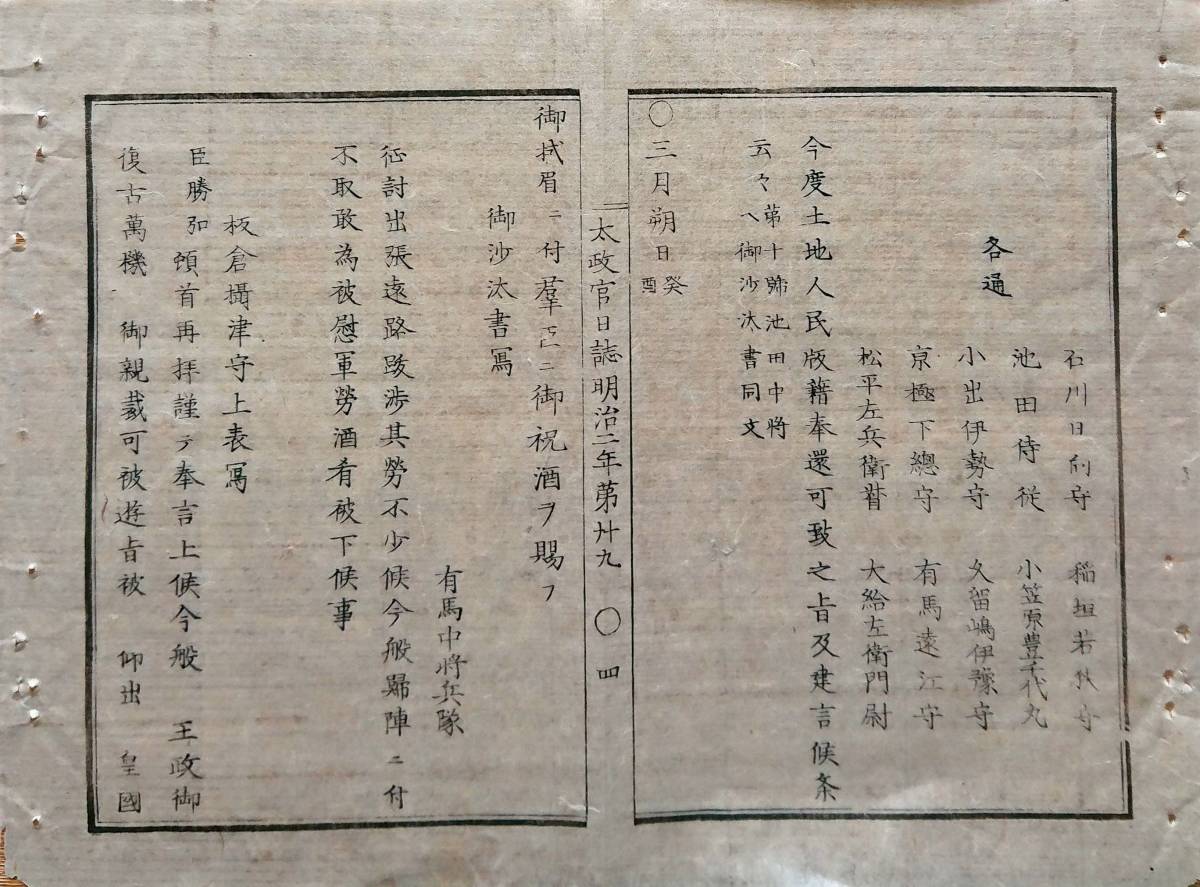 石川日向守　稲垣若狭守
池田侍従　小笠原豊千代丸
各通
小出伊勢守　久留嶋伊豫守
京極下總守　有馬遠江守
松平左兵衛督　大給左衛門尉
今度土地人民版藉奉還可致之旨及建言候条
云々第十號池田中將
ヘ御沙汰書同文
〇三月朔日癸酉
太政官日誌明治二年第廿九　〇　四
御拭眉ニ付羣臣ニ御祝酒ヲ賜フ
御沙汰書寫
有馬中將兵隊
征討出張遠路跋渉其勞不少候今般歸陣ニ付
不取敢為被慰軍勞酒肴被下候事
板倉攝津守上表寫
臣勝弘頓首再拝謹テ奉言上候今般　王政御
復古萬機　御親裁可被遊旨被　仰出　皇國